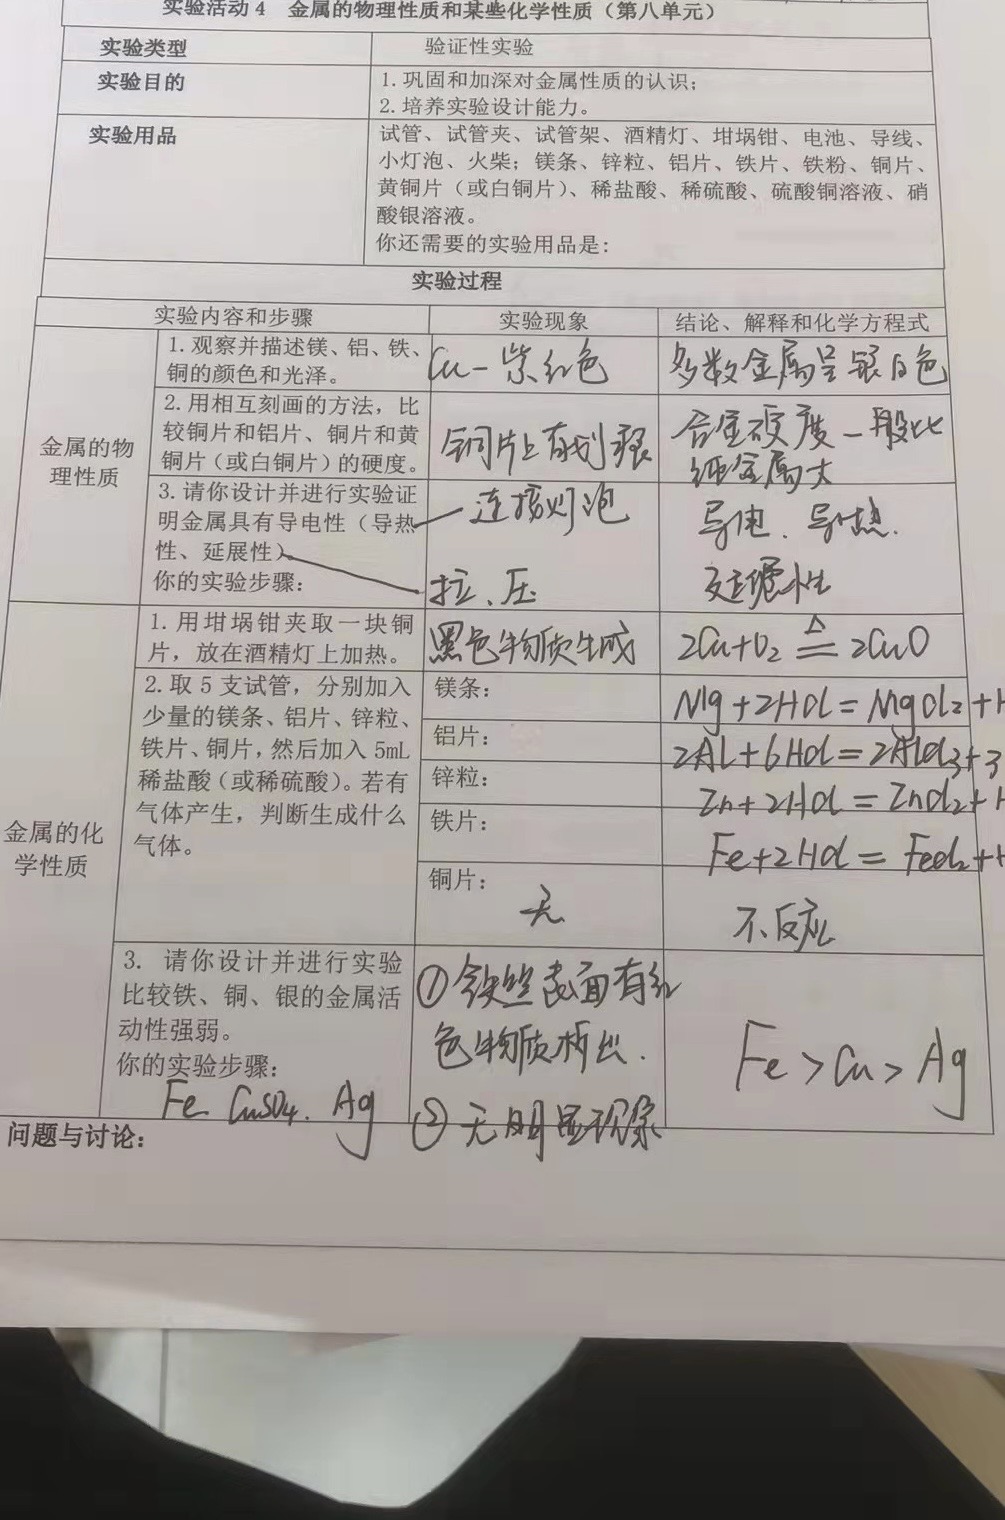 实验活动4 金属的物理性质和某些化学性质（第八单元）
实验类型 验证性实验
实验目的 1.巩固和加深对金属性质的认识；
2.培养实验设计能力。
实验用品 试管、试管夹、试管架、酒精灯、坩埚钳、电池、导线、
小灯泡、火柴；镁条、锌粒、铝片、铁片、铁粉、铜片、
黄铜片（或白铜片）、稀盐酸、稀硫酸、硫酸铜溶液、硝
酸银溶液。
你还需要的实验用品是：
实验过程
实验内容和步骤 实验现象 结论、解释和化学方程式
金属的物
理性质
1.观察并描述镁、铝、铁、
铜的颜色和光泽。
Cu－紫红色
多数金属呈银白色
2.用相互刻画的方法，比
较铜片和铝片、铜片和黄
铜片（或白铜片）的硬度。
铜片上有划痕
合金硬度一般比
纯金属大
3.请你设计并进行实验证
明金属具有导电性（导热
性、延展性）
你的实验步骤：
连接灯泡
拉、压
导电、导热.
延展性
金属的化
学性质
1.用坩埚钳夹取一块铜
片，放在酒精灯上加热。
黑色物质生成
2Cu+O₂ ≜ 2CuO
2.取5支试管，分别加入
少量的镁条、铝片、锌粒、
铁片、铜片，然后加入5mL
稀盐酸（或稀硫酸）。若有
气体产生，判断生成什么
气体。
镁条：
Mg+2HCl=MgCl₂+H
铝片：
2Al+6HCl=2AlCl₃+3
锌粒：
Zn+2HCl=ZnCl₂+H
铁片：
Fe+2HCl=FeCl₂+H
铜片：
无
不反应
3. 请你设计并进行实验
比较铁、铜、银的金属活
动性强弱。
你的实验步骤：
Fe CuSO₄. Ag
①铁丝表面有红
色物质析出.
②无明显现象
Fe>Cu>Ag
问题与讨论：